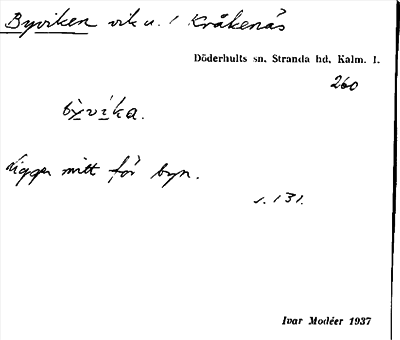 Byviken vik u. / Kråkenäs
Döderhults sn, Stranda hd, Kalm. l.
260
bývíka.
Ligger mitt för byn.
s. 131.
Ivar Modéer 1937